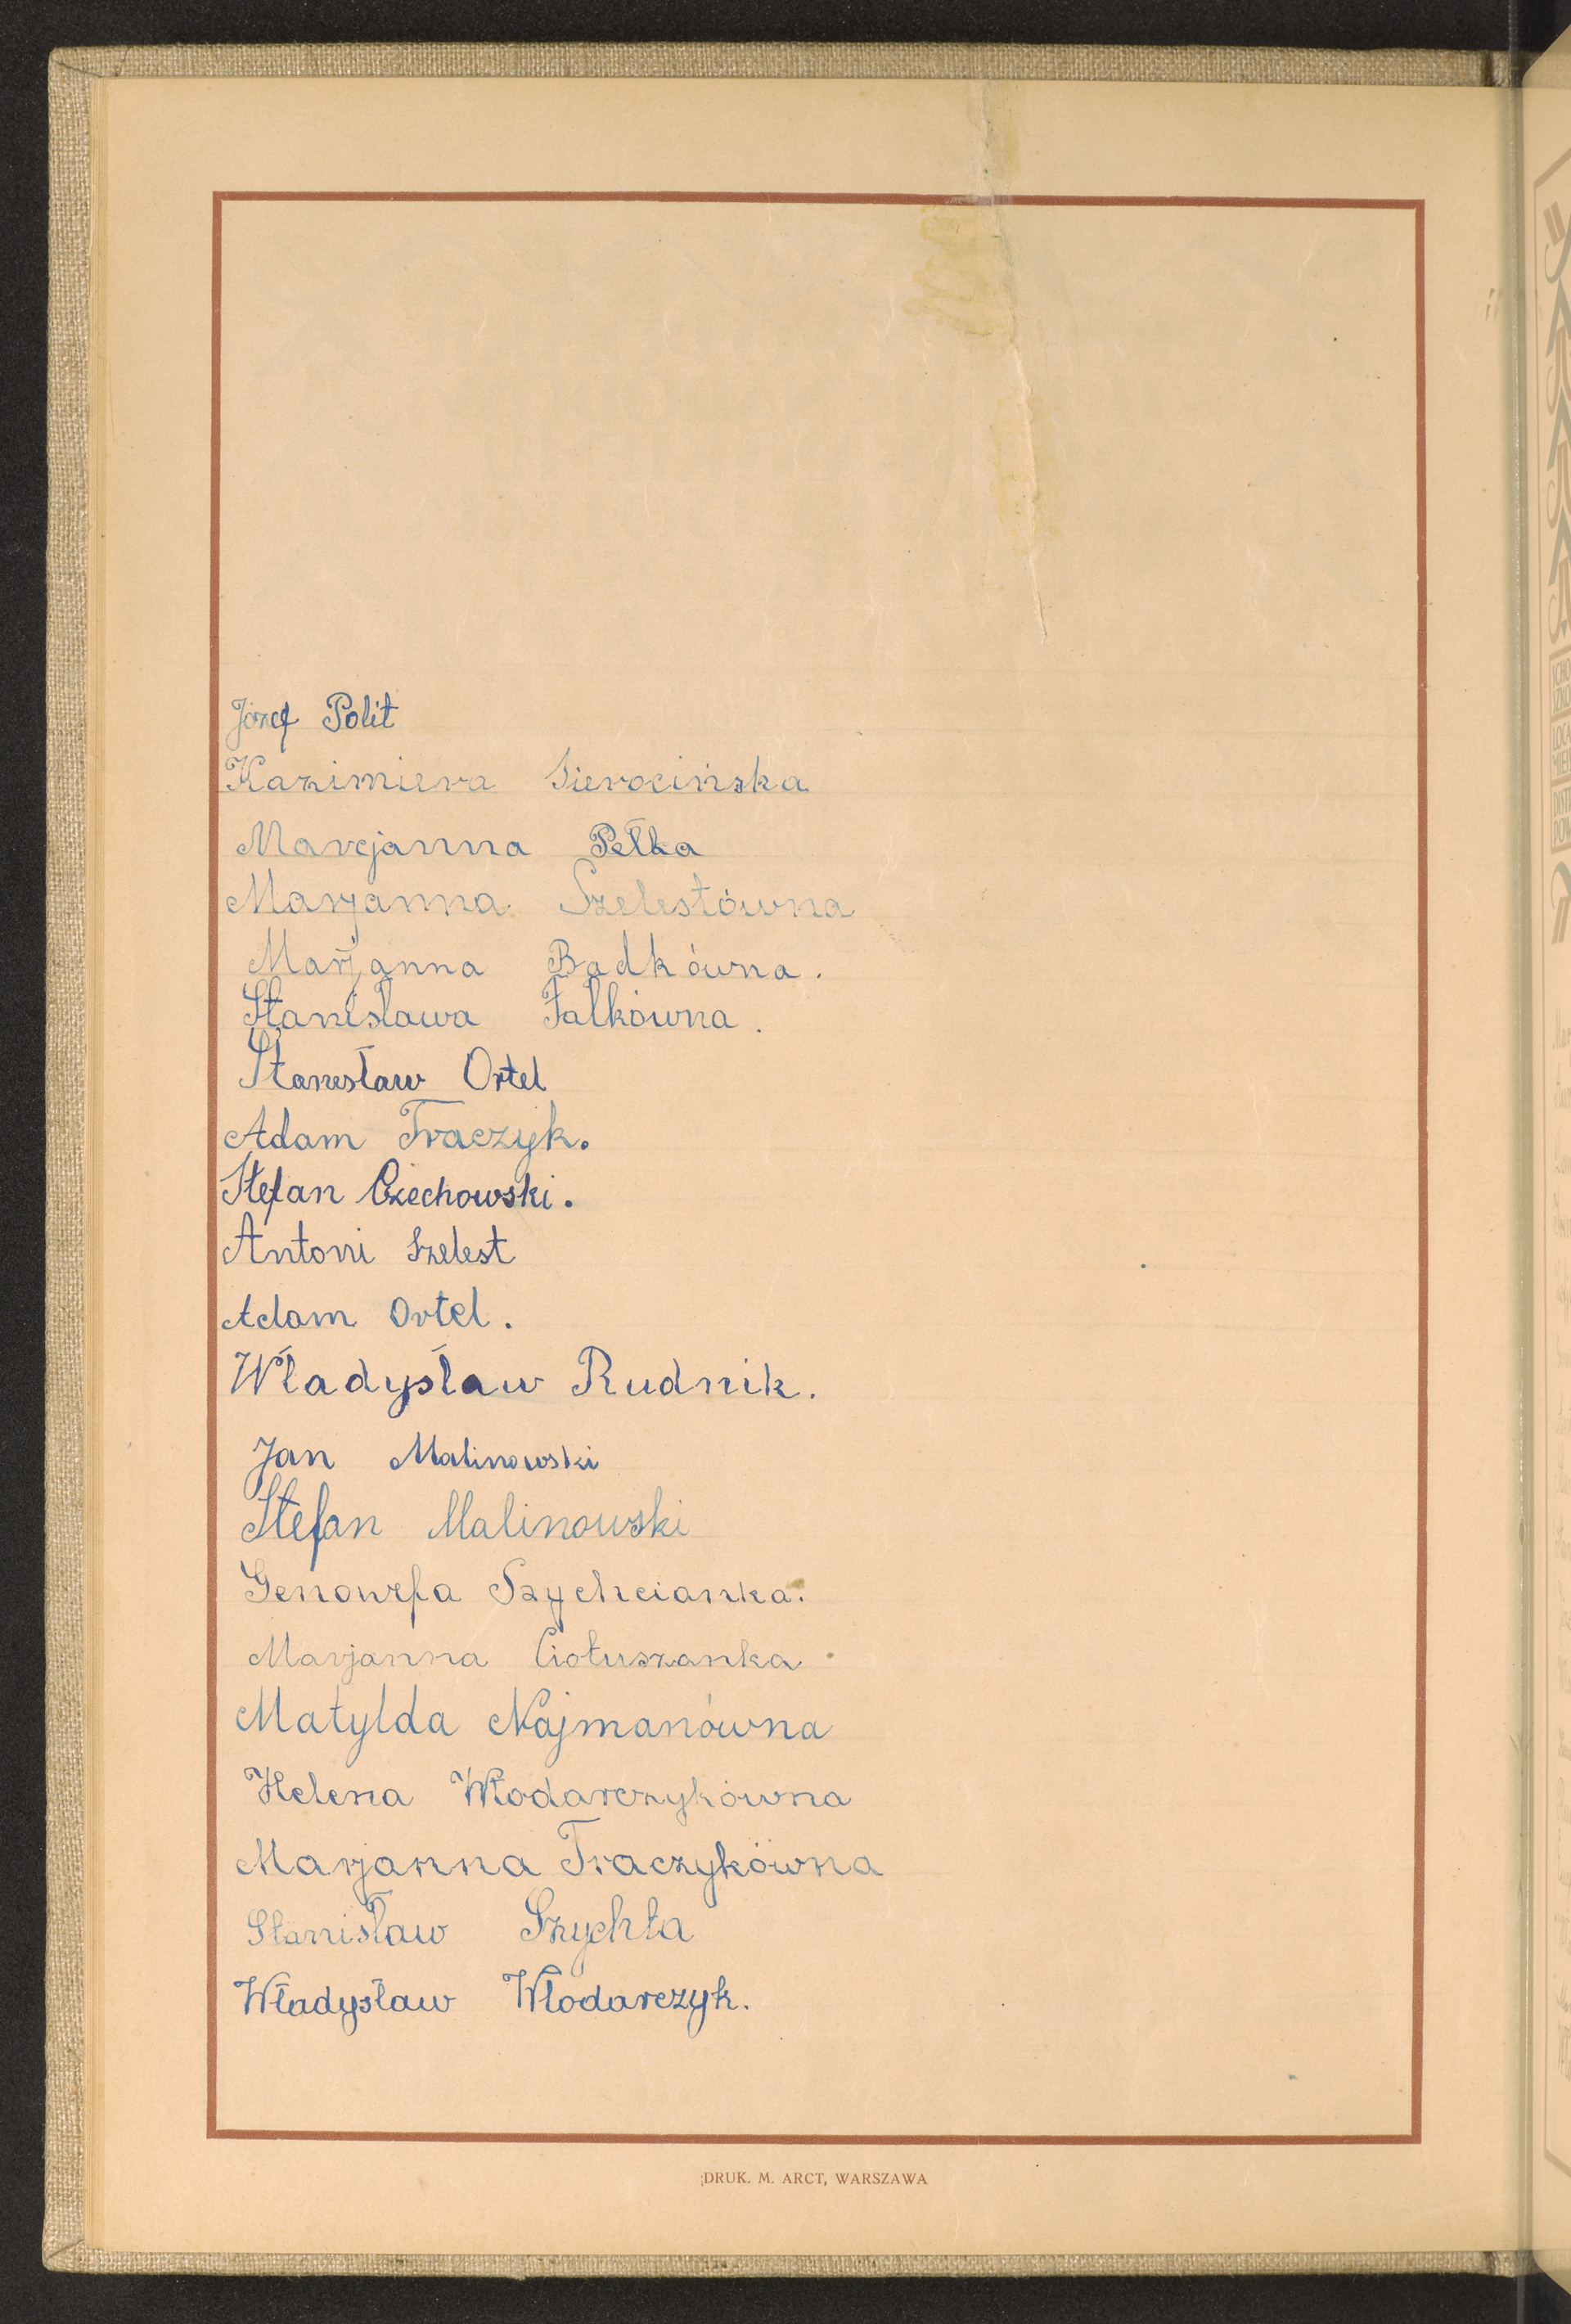 Józef Polit
Kazimiera Sierocińska
Marcjanna Pełka
Marjanna Szelestówna
Marjanna Badkówna.
Stanisława Fałkówna.
Stanesław Ortel
Adam Traczyk.
Stefan Czechowski.
Antoni Szelest
Adam Ortel.
Władysław Rudnik.
Jan Malinowski
Stefan Malinowski
Genowefa Szychcianka.
Marjanna Ciołuszanka
Matylda Najmanówna
Helena Włodarczykówna
Marjanna Traczykówna
Stanisław Szychta
Władysław Włodarczyk.
DRUK. M. ARCT, WARSZAWA